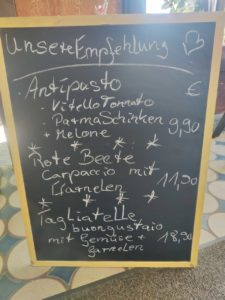 Unsere Empfehlung
. Antipasto €
. Vitello Tonnato
. Parma Schinken 9,90
+ Melone
* * *
Rote Beete
Carpaccio mit
Garnelen 11,90
* * *
Tagliatelle
buongustaio
mit Gemüse + 18,90
Garnelen